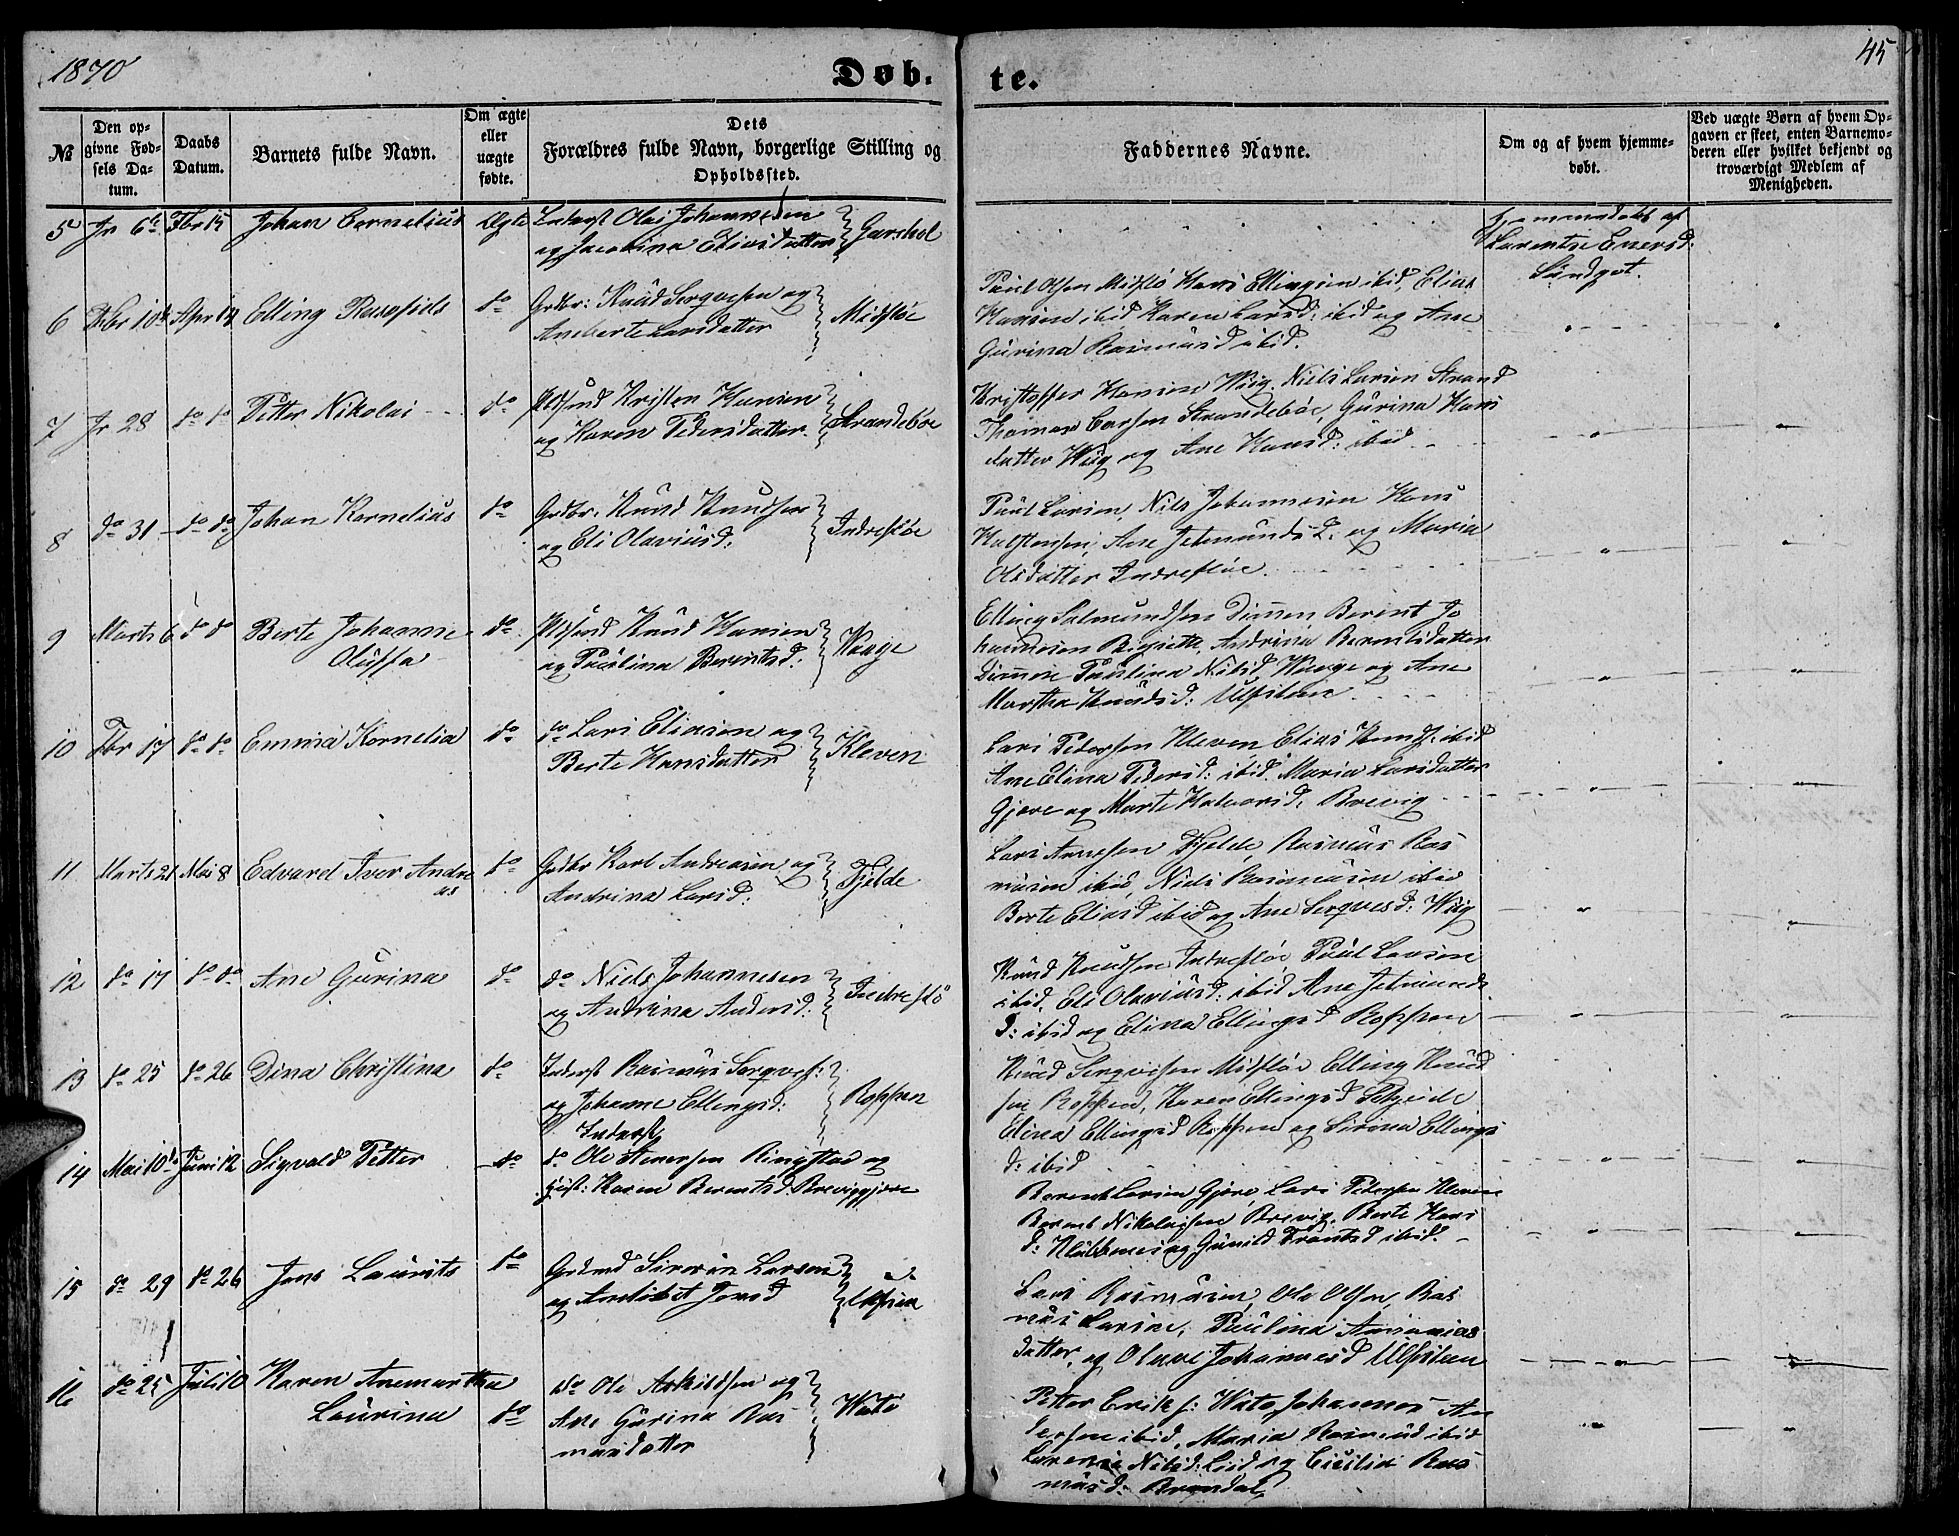 1870
Døb.
te.
45
№
Den opgivne Fødsels Datum.
Daabs Datum.
Barnets fulde Navn.
Om ægte eller uægte fødte.
Dets Forældres fulde Navn, borgerlige Stilling og Opholdssted.
Faddernes Navne.
Om og af hvem hjemmedøbt.
Ved uægte Børn af hvem Opgaven er skeet, enten Barnemoderen eller hvilket bekjendt og troværdigt Medlem af Menigheden.
5 Jr 6te Fbr 15 Johan Cornelius Ægte Inderst Olai Johannesen
og Jacobina Eliasdatter Garshol
Hjemmedøbt af
Larentse Eversd:
Sundgot.
6 Fbr 10de Apr 14 Elling do Grdbr: Knud Serqvesen og
Aneberte Larsdatter Midfløe
Paul Olsen Midflø Hans Ellingsen ibid, Elias
Hansen ibid Karen Larsd: ibid og Ane
Gurina Rasmusd ibid.
7 Jr 28 do do Petter Nikolai do Pldsmd Kristen Hansen
og Karen Pedersdatter Strandebøe
Kristoffer Hansen Wiig. Niels Larsen Strand
Thomas Larsen Strandebøe, Gurina Hans
datter Wiig og Ane Hansd: ibid
8 do 31 do do Johan Kornelius do Grdbr. Knud Knudsen
og Eli Olaviusd: Indrefløe
Paul Larsen, Nils Johannesen Hans
Halstensen, Ane Jetmunds D. og Maria
Olsdatter Indrefløe.
9 Marts 6 do do Berte Johanne
Oluffa do Pldsmd Knud Hansen
og Paulina Berentsd: Waage
Elling Salmundsen Dimmen Berent Jo
hannesen Andrina Berentsdatter
Dimmen Paulina Nilsd Waage og Ane
Martha Knudsd: Ulfsten
10 Fbr 17 do do Emma Kornelia do do Lars Eliasen og
Berte Hansdatter Kleven
Lars Pedersen Kleven Elias Knuds: ibid
Ane Elina Pedersd: ibid. Maria Larsdatter
Gjøre og Marte Halvorsd. Brevig
11 Marts 21 Mai 8 Edvard Iver Andre
as do Grdbr Karl Andreasen og
Andrina Larsd: Fjelde
Lars Arnesen Fjelde, Rasmus Ras
musen ibid, Niels Rasmusen ibid
Berte Eliasd ibid og Ane Serqvesd: Wiig
12 do 17 do do Ane Gurina do do Niels Johannesen
og Andrina Andersd: Indreflø
Knud Knudsen Indrefløe Paul Larsen
ibid. Eli Olaviusd: ibid Ane Jetmunds
D: ibid og Elina Ellingsd Roppen
13 do 25 do 26 Dina Christina do Inderst Rasmus Serqves:
og Johanne Ellingsd: Roppen
Knud Serqvesen Midfløe Elling Knud
sen Roppen, Karen Ellingsd
Elina Ellingsd Roppen og Sirena Ellings
d: ibid
14 Mai 10de Juni 12 Sigvald Petter do Inderst
do Ole Steversen Ringstad og
Karen Berentsd. Breviggjøre
Berent Larsen Gjøre, Lars Pedersen Kleven
Berent Nikolaisen Brevig, Berte Hans
d: og Gunild ibid.
15 do 29 do 26 Jens Laurits do Grdmd Siverin Larsen
og Anelisbet Jensd Ulfsten
Lars Rasmusen, Ole Olsen, Ras
mus Larsen, Paulina Ananias
datter, og Olave Johannesd Ulfsten
16 do 25 Juli 10 Karen Anemartha
Laurina do do Ole Askildsen og
Ane Gurina Ras
musdatter Watø
Petter Eriks: Watø, Johannes An
dersen ibid, Maria Rasmusd ibid
Nilsd: Liid og Cicilia Ras
musd: Brandal